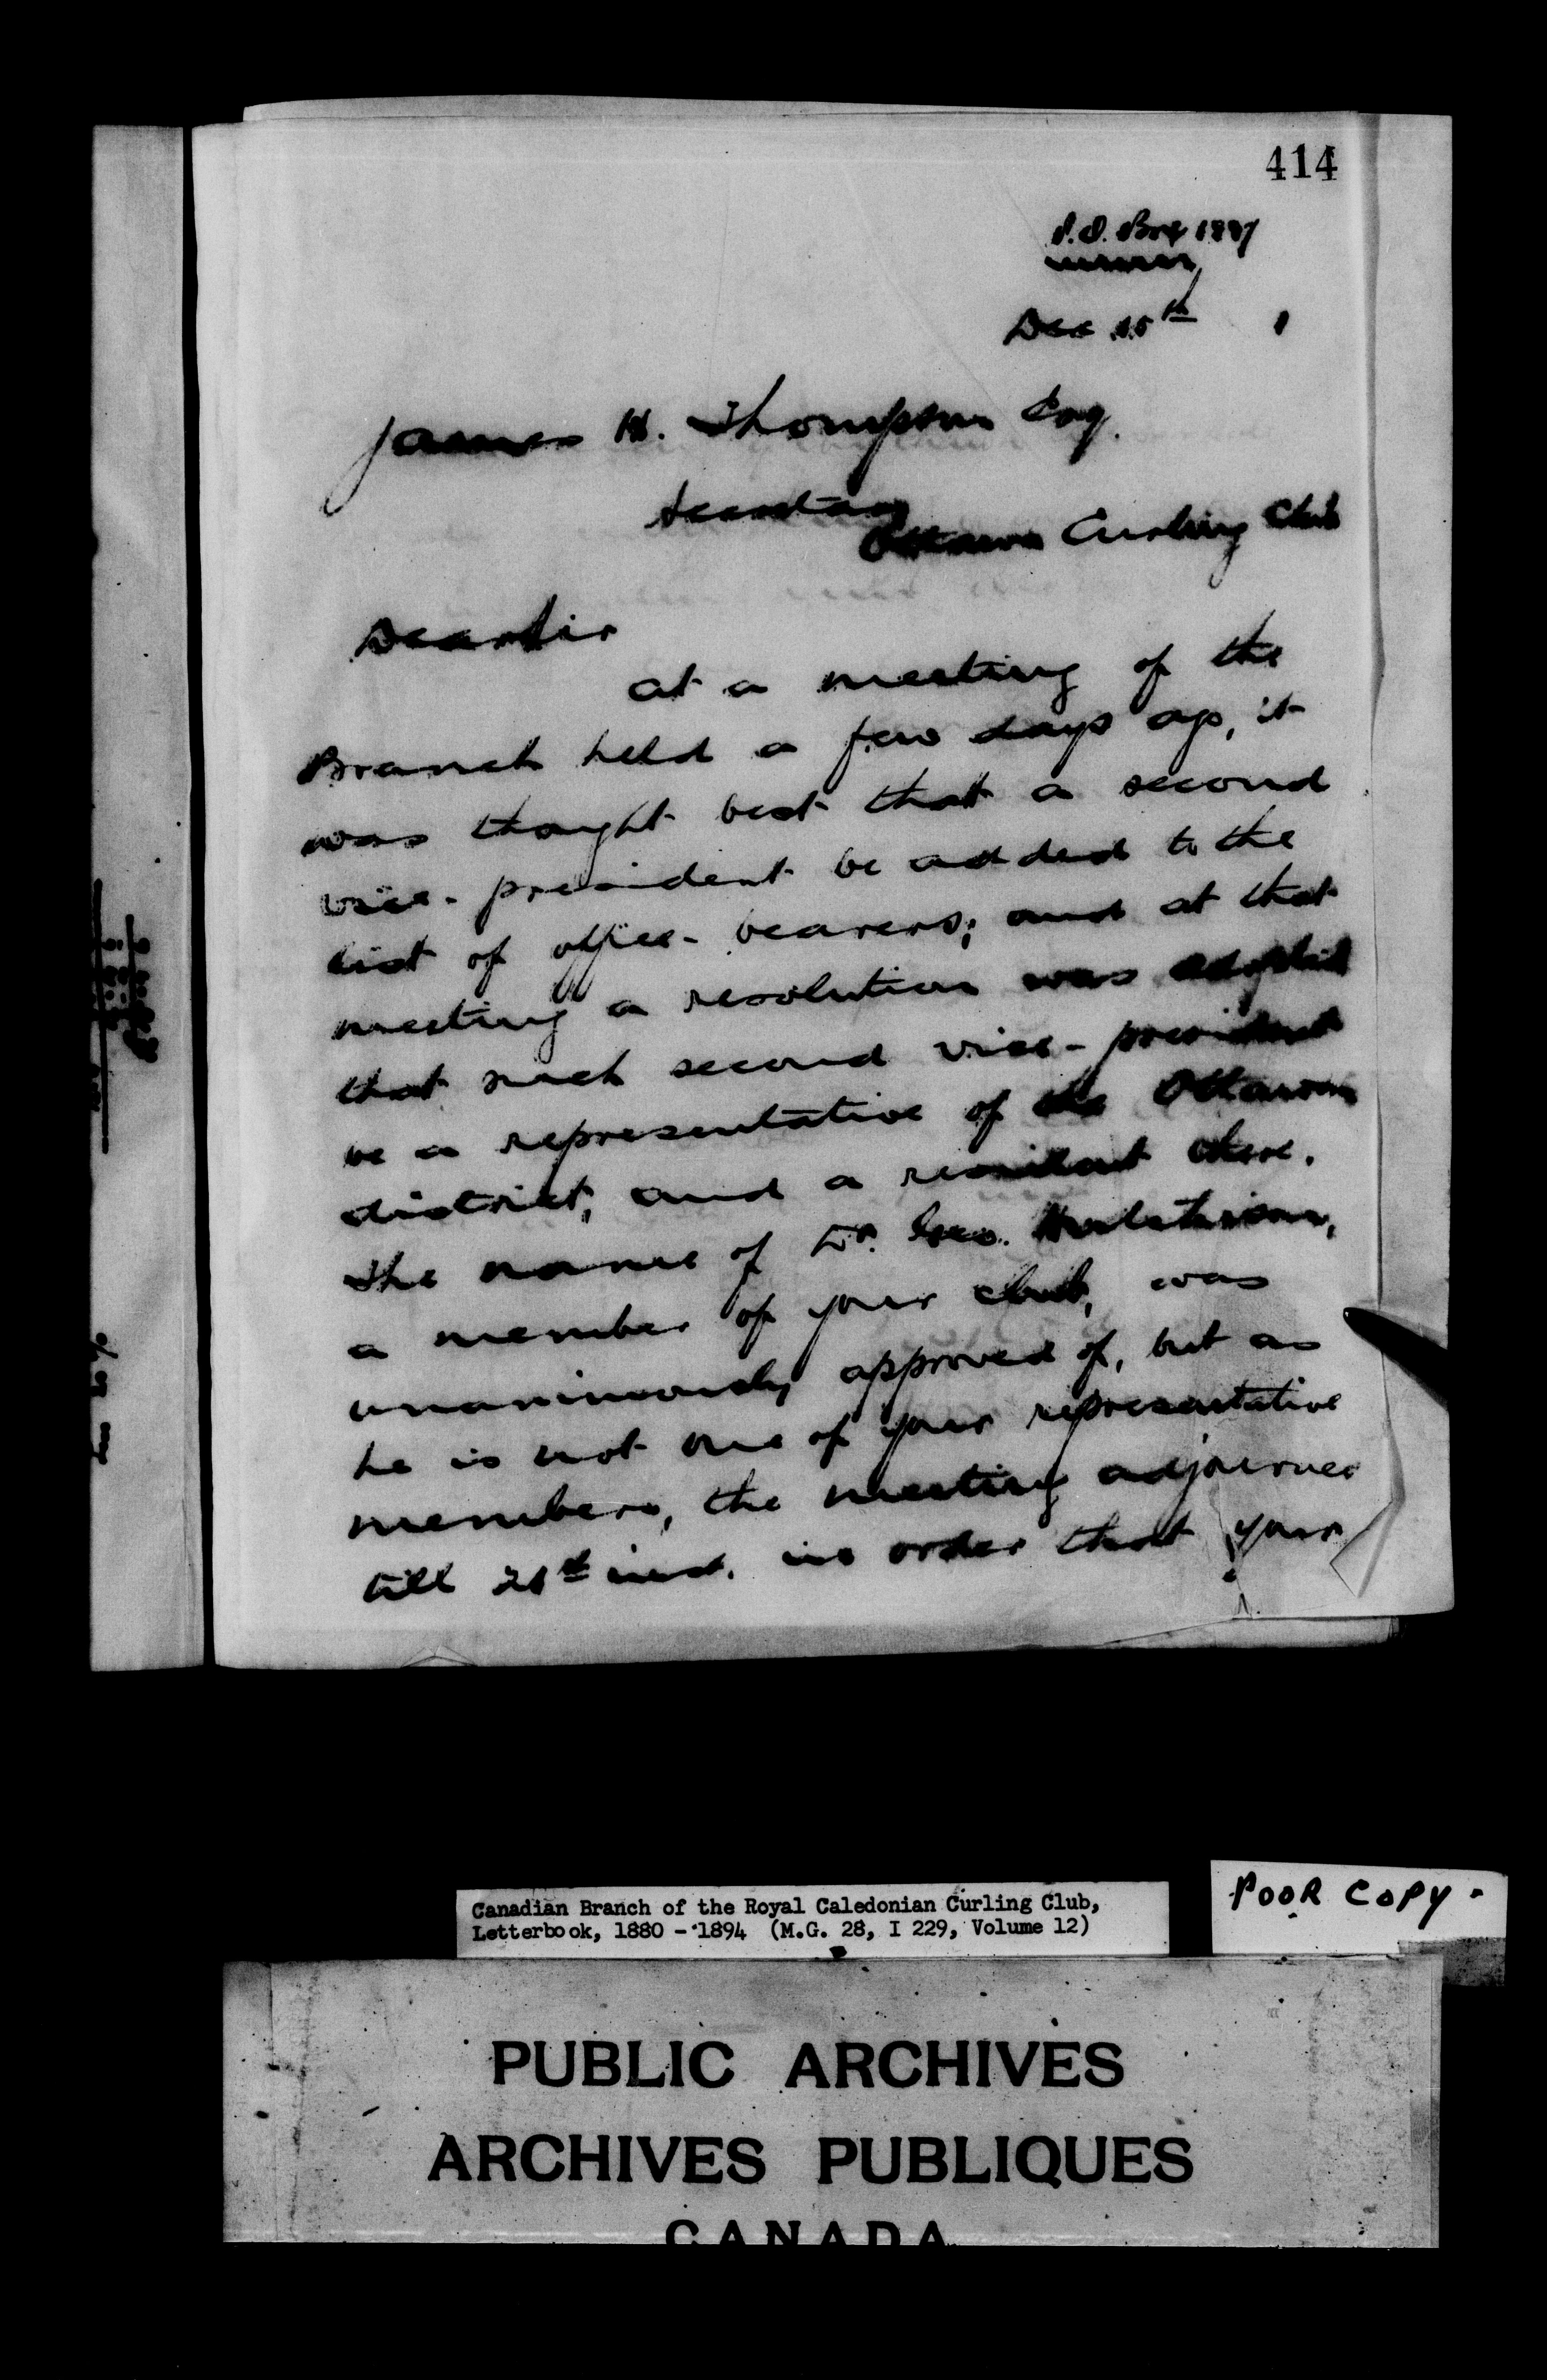 414
P.O. Box 1887
Dec 15th
James H. Thompson Esq.
Secretary
Ottawa Curling Club
Dear Sir
at a meeting of the
Branch held a few days ago, it
was thought best that a second
vice-president be added to the
list of office-bearers; and at that
meeting a resolution was adopted
that such second vice-president
be a representative of the Ottawa
district, and a resident there.
The name of Dr. Geo. Hutchison,
a member of your club, was
unanimously approved of, but as
he is not one of your representative
members, the meeting adjourned
till inst. in order that your
Canadian Branch of the Royal Caledonian Curling Club,
Letterbook, 1880 - 1894 (M.G. 28, I 229, Volume 12)
POOR COPY -
PUBLIC ARCHIVES
ARCHIVES PUBLIQUES
CANADA